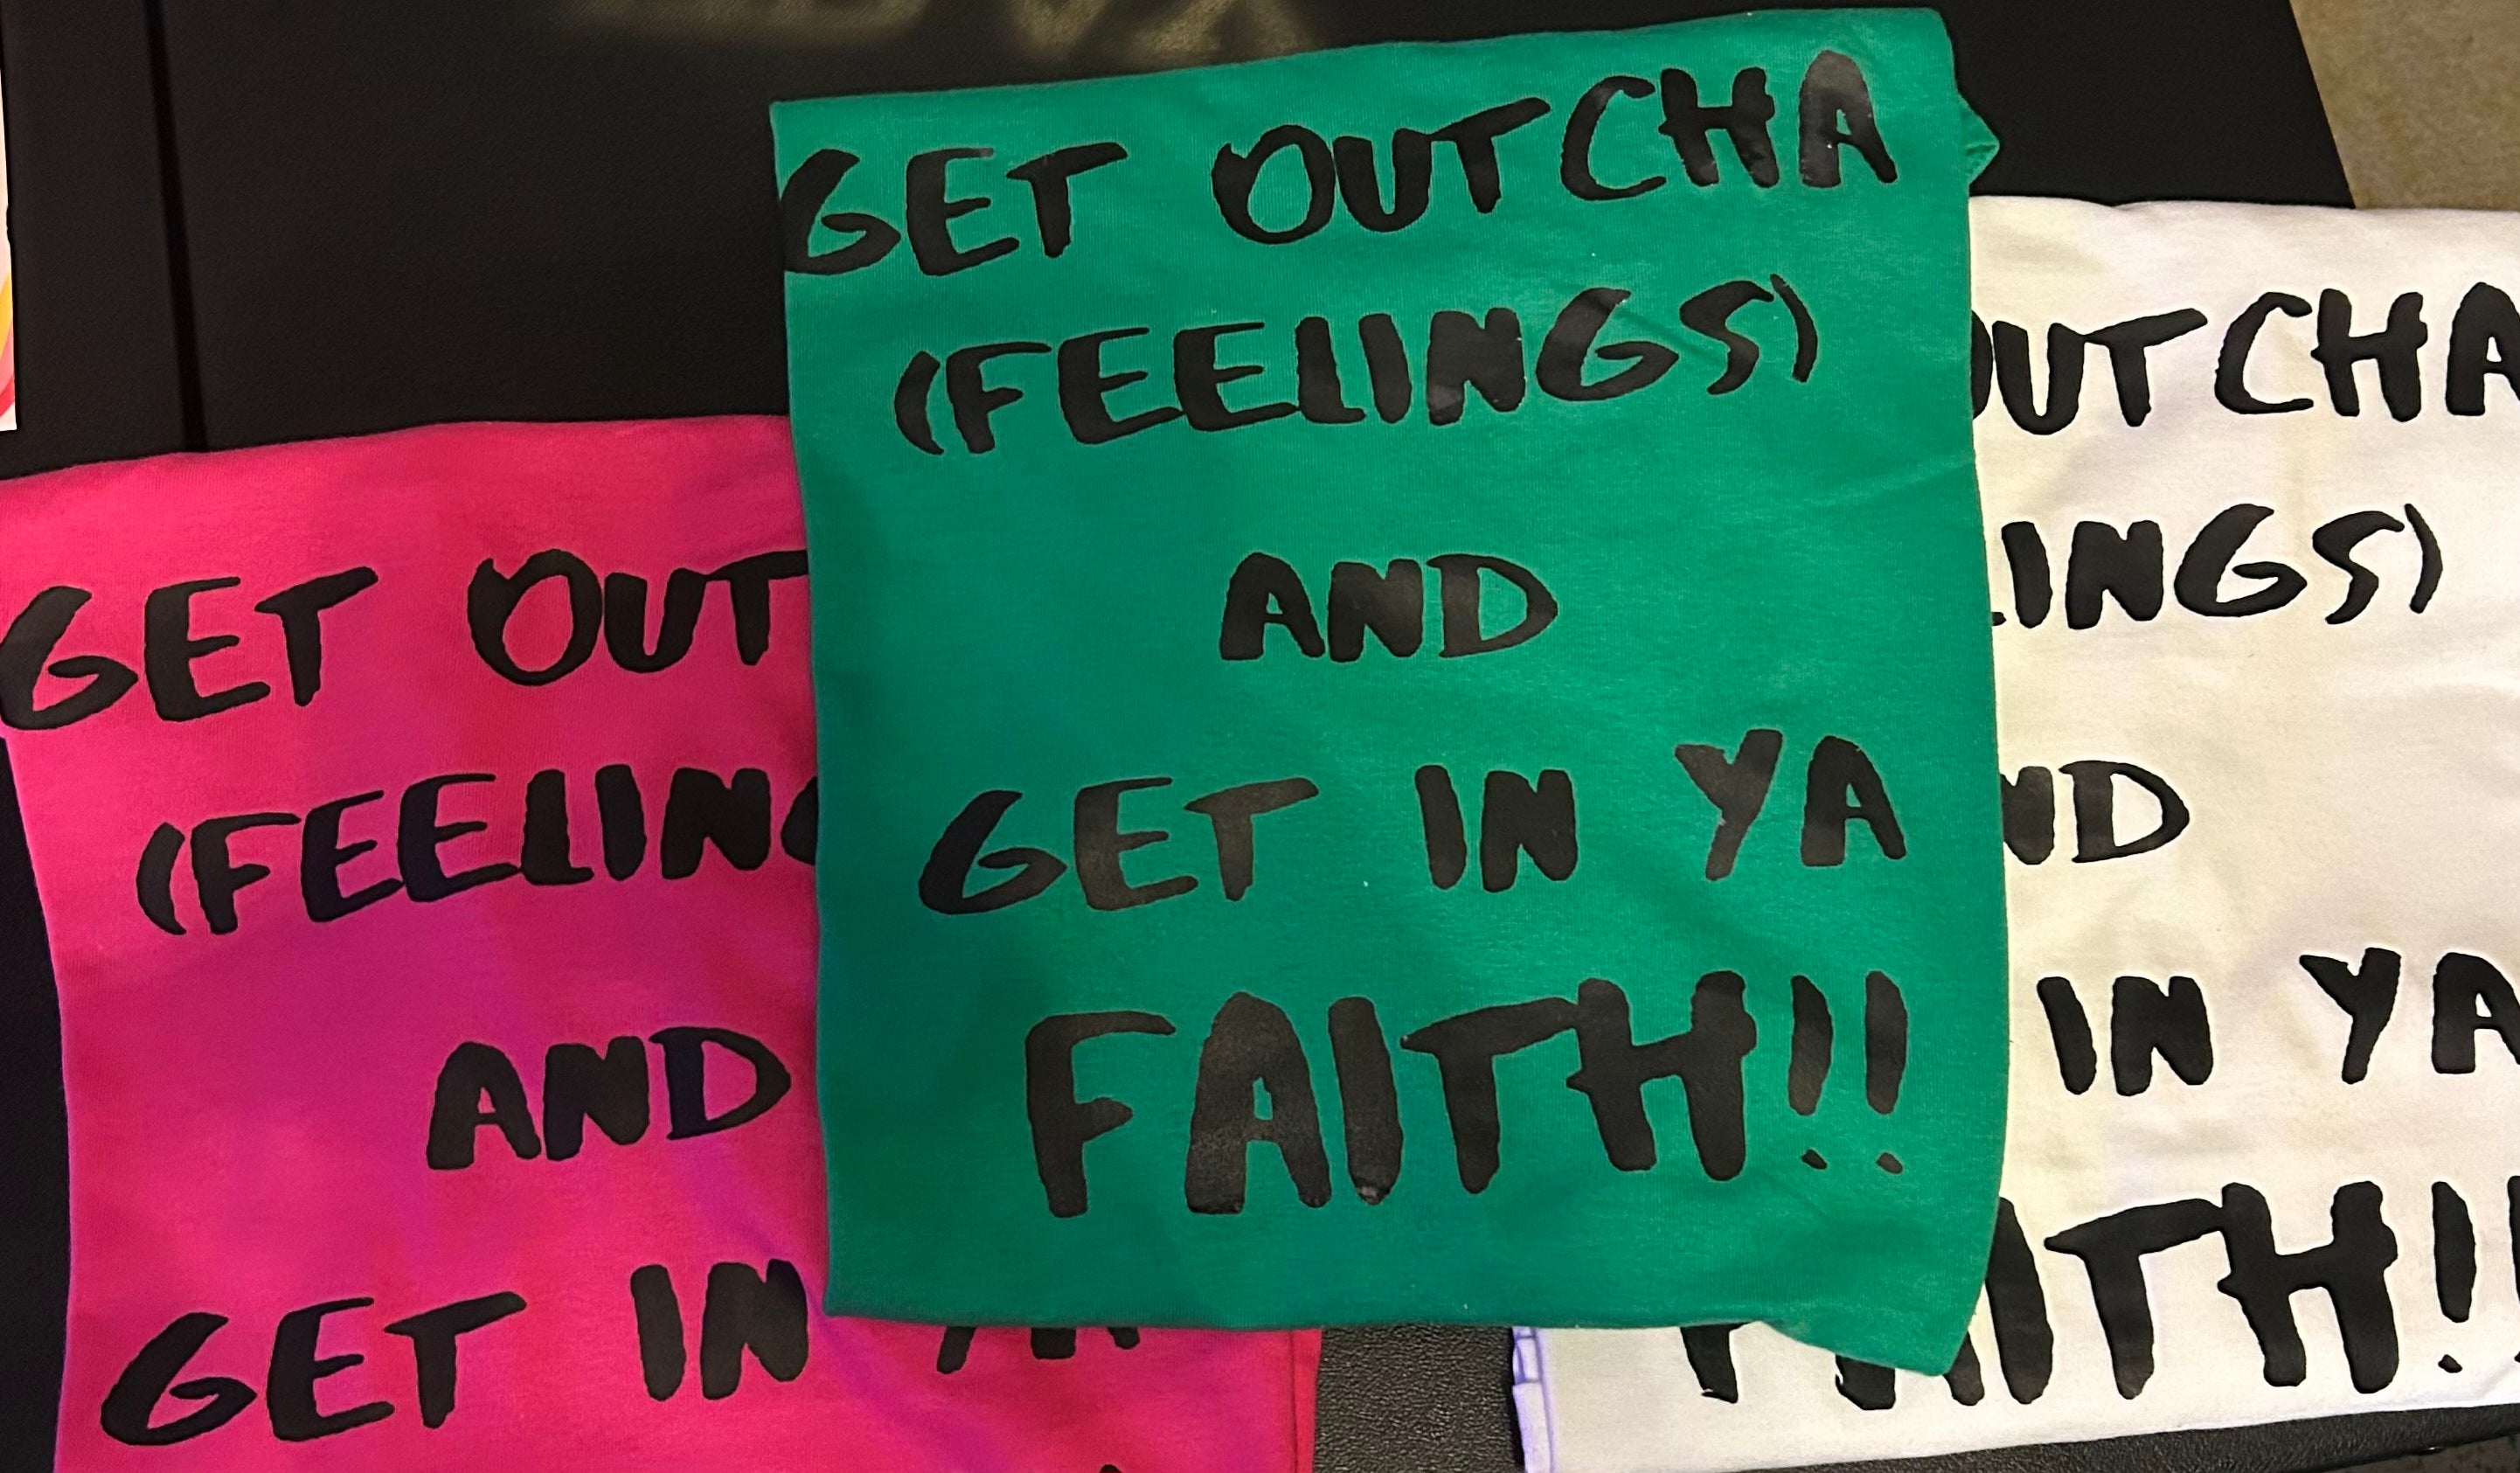 GET OUTCHA
(FEELINGS)
AND
GET IN YA
FAITH!!
GET OUT
(FEELING
AND
GET IN YA
OUTCHA
LINGS)
ND
IN YA
FAITH!!